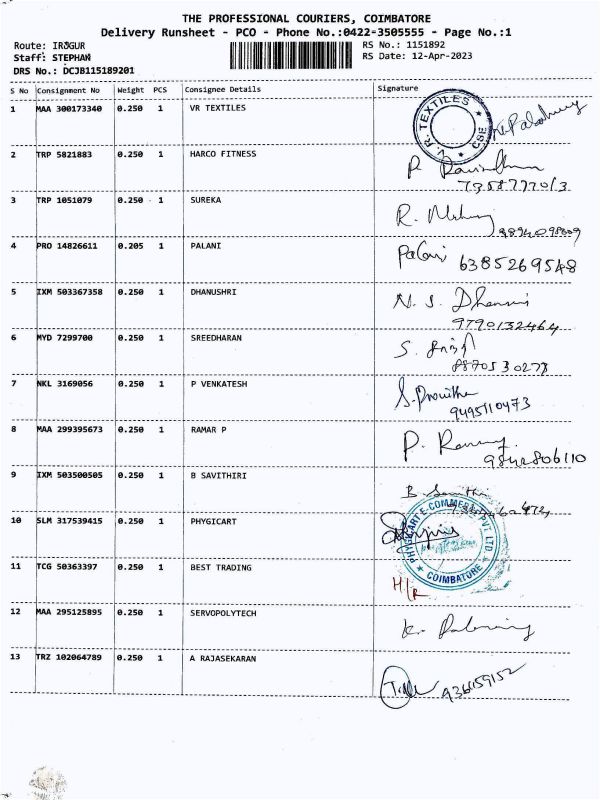 THE PROFESSIONAL COURIERS, COIMBATORE
Delivery Runsheet - PCO - Phone No.:0422-3505555 - Page No.:1
Route: IRUGUR RS No.: 1151892
Staff: STEPHAN RS Date: 12-Apr-2023
DRS No.: DCJB115189201
S No Consignment No Weight PCS Consignee Details Signature
1 MAA 300173340 0.250 1 VR TEXTILES
V. R. TEXTILES ★ CBE ★
2 TRP 5821883 0.250 1 HARCO FITNESS
3 TRP 1051079 0.250 1 SUREKA R.
4 PRO 14826611 0.205 1 PALANI Palani 6385269548
5 IXM 503367358 0.250 1 DHANUSHRI N. S.
9790132464
6 MYD 7299700 0.250 1 SREEDHARAN S.
7 NKL 3169056 0.250 1 P VENKATESH
9495110473
8 MAA 299395673 0.250 1 RAMAR P P.
9842806110
9 IXM 503500505 0.250 1 B SAVITHIRI B.
10 SLM 317539415 0.250 1 PHYGICART
PHYGICART E-COMMERCE PVT LTD ★ COIMBATORE ★
11 TCG 50363397 0.250 1 BEST TRADING
H/R
12 MAA 295125895 0.250 1 SERVOPOLYTECH K.
13 TRZ 102064789 0.250 1 A RAJASEKARAN